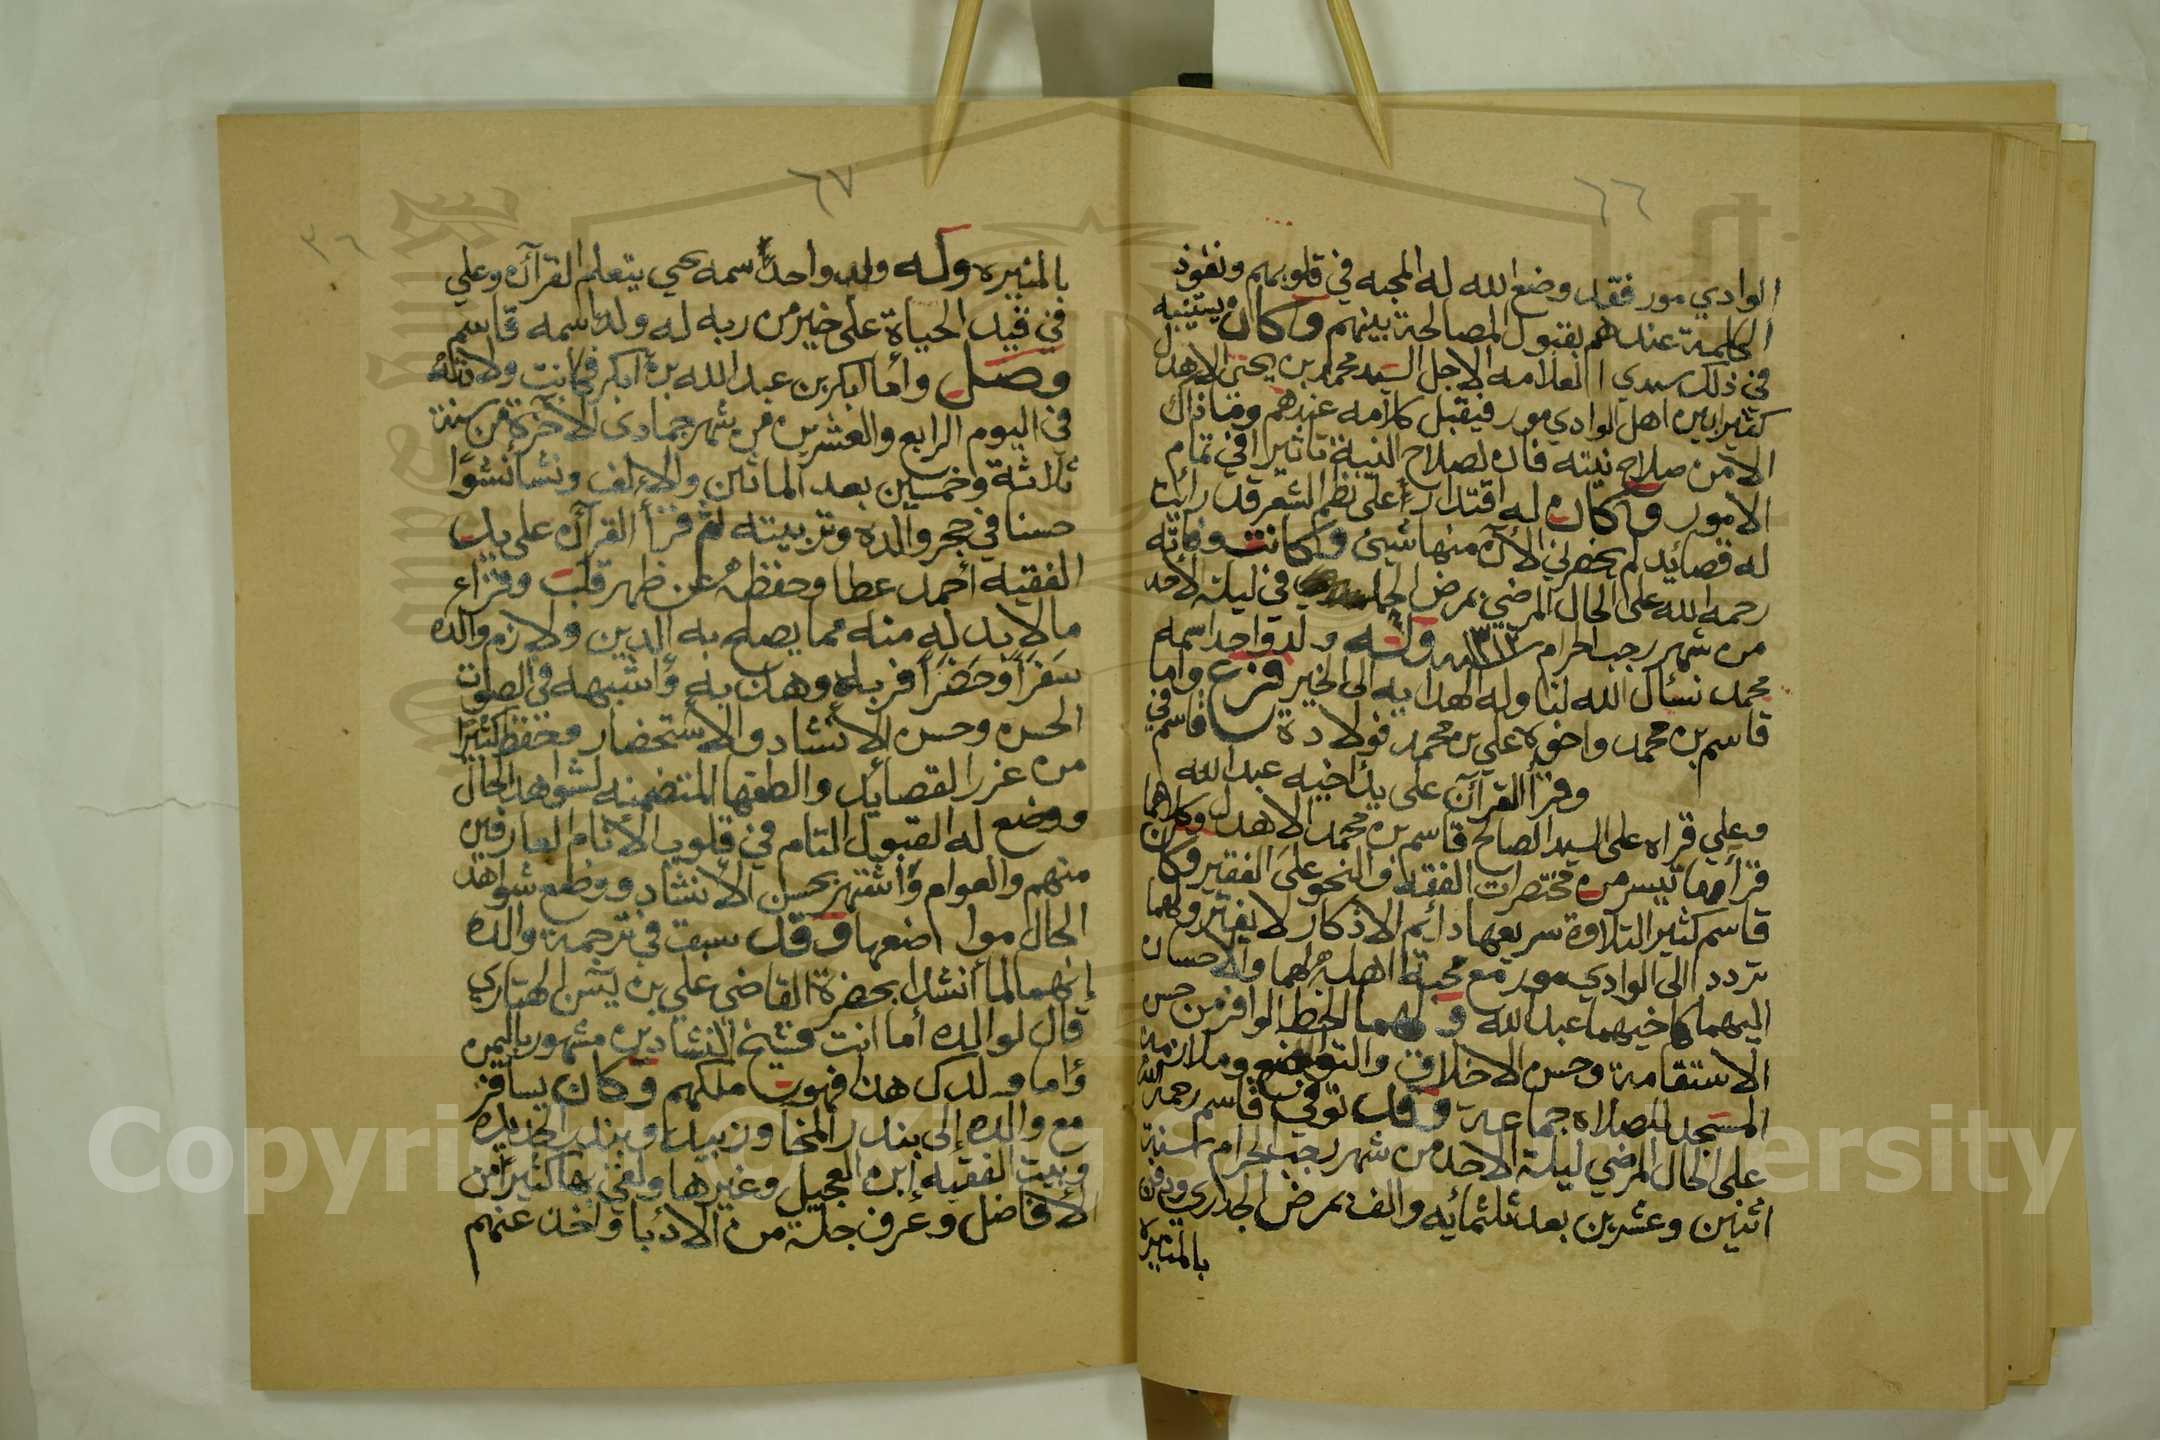 ٦٦
الوادي مور فقد وضع الله له المحبه في قلوبهم ونفوذ
الكلمة عندهم بقبول المصالحة بينهم وكان يستنيبه
في ذلك سيدي العلامه الاجل السيد محمد بن يحيى الاهدل
كثيرا بين اهل الوادي مور فيقبل كلامه عندهم وما ذاك
الا من صلاح نيته فان لصلاح النية تاثيرا في تمام
الامور وكان له اقتدارأ على نظم الشعر قد رائيت
له قصائد لم يحضرني الآن منها شيئ وكانت وفاته
رحمه الله على الحال المرضي بمرض في ليلة الاحد
من شهر رجب الحرام وله ولد واحد اسمه
محمد نسأل الله لنا وله الهدايه الى الخير فرع واما
قاسم بن محمد واخوه علي بن محمد فولادة قاسم في
وقرأ القرآن على يد اخيه عبد الله
وعلي قراه على السيد الصالح قاسم بن محمد الاهدل وكلاهما
قرأ ما تيسر من مختصرات الفقه والنحو على الفقير وكان
قاسم كثير التلاوة سريعها دائم الاذكار لا يفتر ولهما
تردد الى الوادي مور مع محبة اهل لهما والاحسان
اليهما كاخيهما عبد الله ولهما الحظ الوافر من حسن
الاستقامة وحسن الاخلاق والتواضع وملازمة
المسجد للصلاه جماعة وقد توفي قاسم رحمه الله
على الحال المرضي ليلة الاحد من شهر رجب الحرام سنة
اثنين وعشرين بعد ثلثمائه والف بمرض الجدري ودفن
بالمنيره
٦٧
٣٦
بالمنيره وله ولد واحد اسمه يحيي يتعلم القرآن وعلي
في قيد الحياة على خير من ربه له ولد اسمه قاسم
وصل وأما ابكر بن عبد الله بن ابكر فكانت ولادته
في اليوم الرابع والعشرين من شهر جمادى الآخرة من سنة
ثلاثة وخمسين بعد المائتين والالف ونشأ نشوًا
حسنا في حجر والده وتربيته ثم قرأ القرآن على يد
الفقيه أحمد عطا وحفظه عن ظهر قلب وقراء
ما لا بد له منه مما يصلح به الدين ولازم والده
سَفرًا وحَضرًا فربله وهذبه وأشبهه في الصوت
الحسن وحسن الأنشاد والأستحضار وحفظ كثيرًا
من غرر القصايد والطفها المتضمنه لشواهد الحال
ووضع له القبول التام في قلوب الأنام العارفين
منهم والعوام وأشتهر بحسن الأنشاد ووضع شواهد
الحال مواضعها وقد سبق في ترجمة والده
إنهما لما أنشدا بحضرة القاضي علي بن يسن الهتاري
قال لوالده أما انت فشيخ النشادين مشهور باليمن
وأما ولدك هذا فهو ملكهم وكان يسافر
مع والده إلى بندر المخا وزبيد وبندر الحديده
وبيت الفقيه إبن العجيل وغيرها ولقي بها كثيرًا من
الأفاضل وعرف جلة من الأدبا واخذ عنهم
Copyright © King Saud University